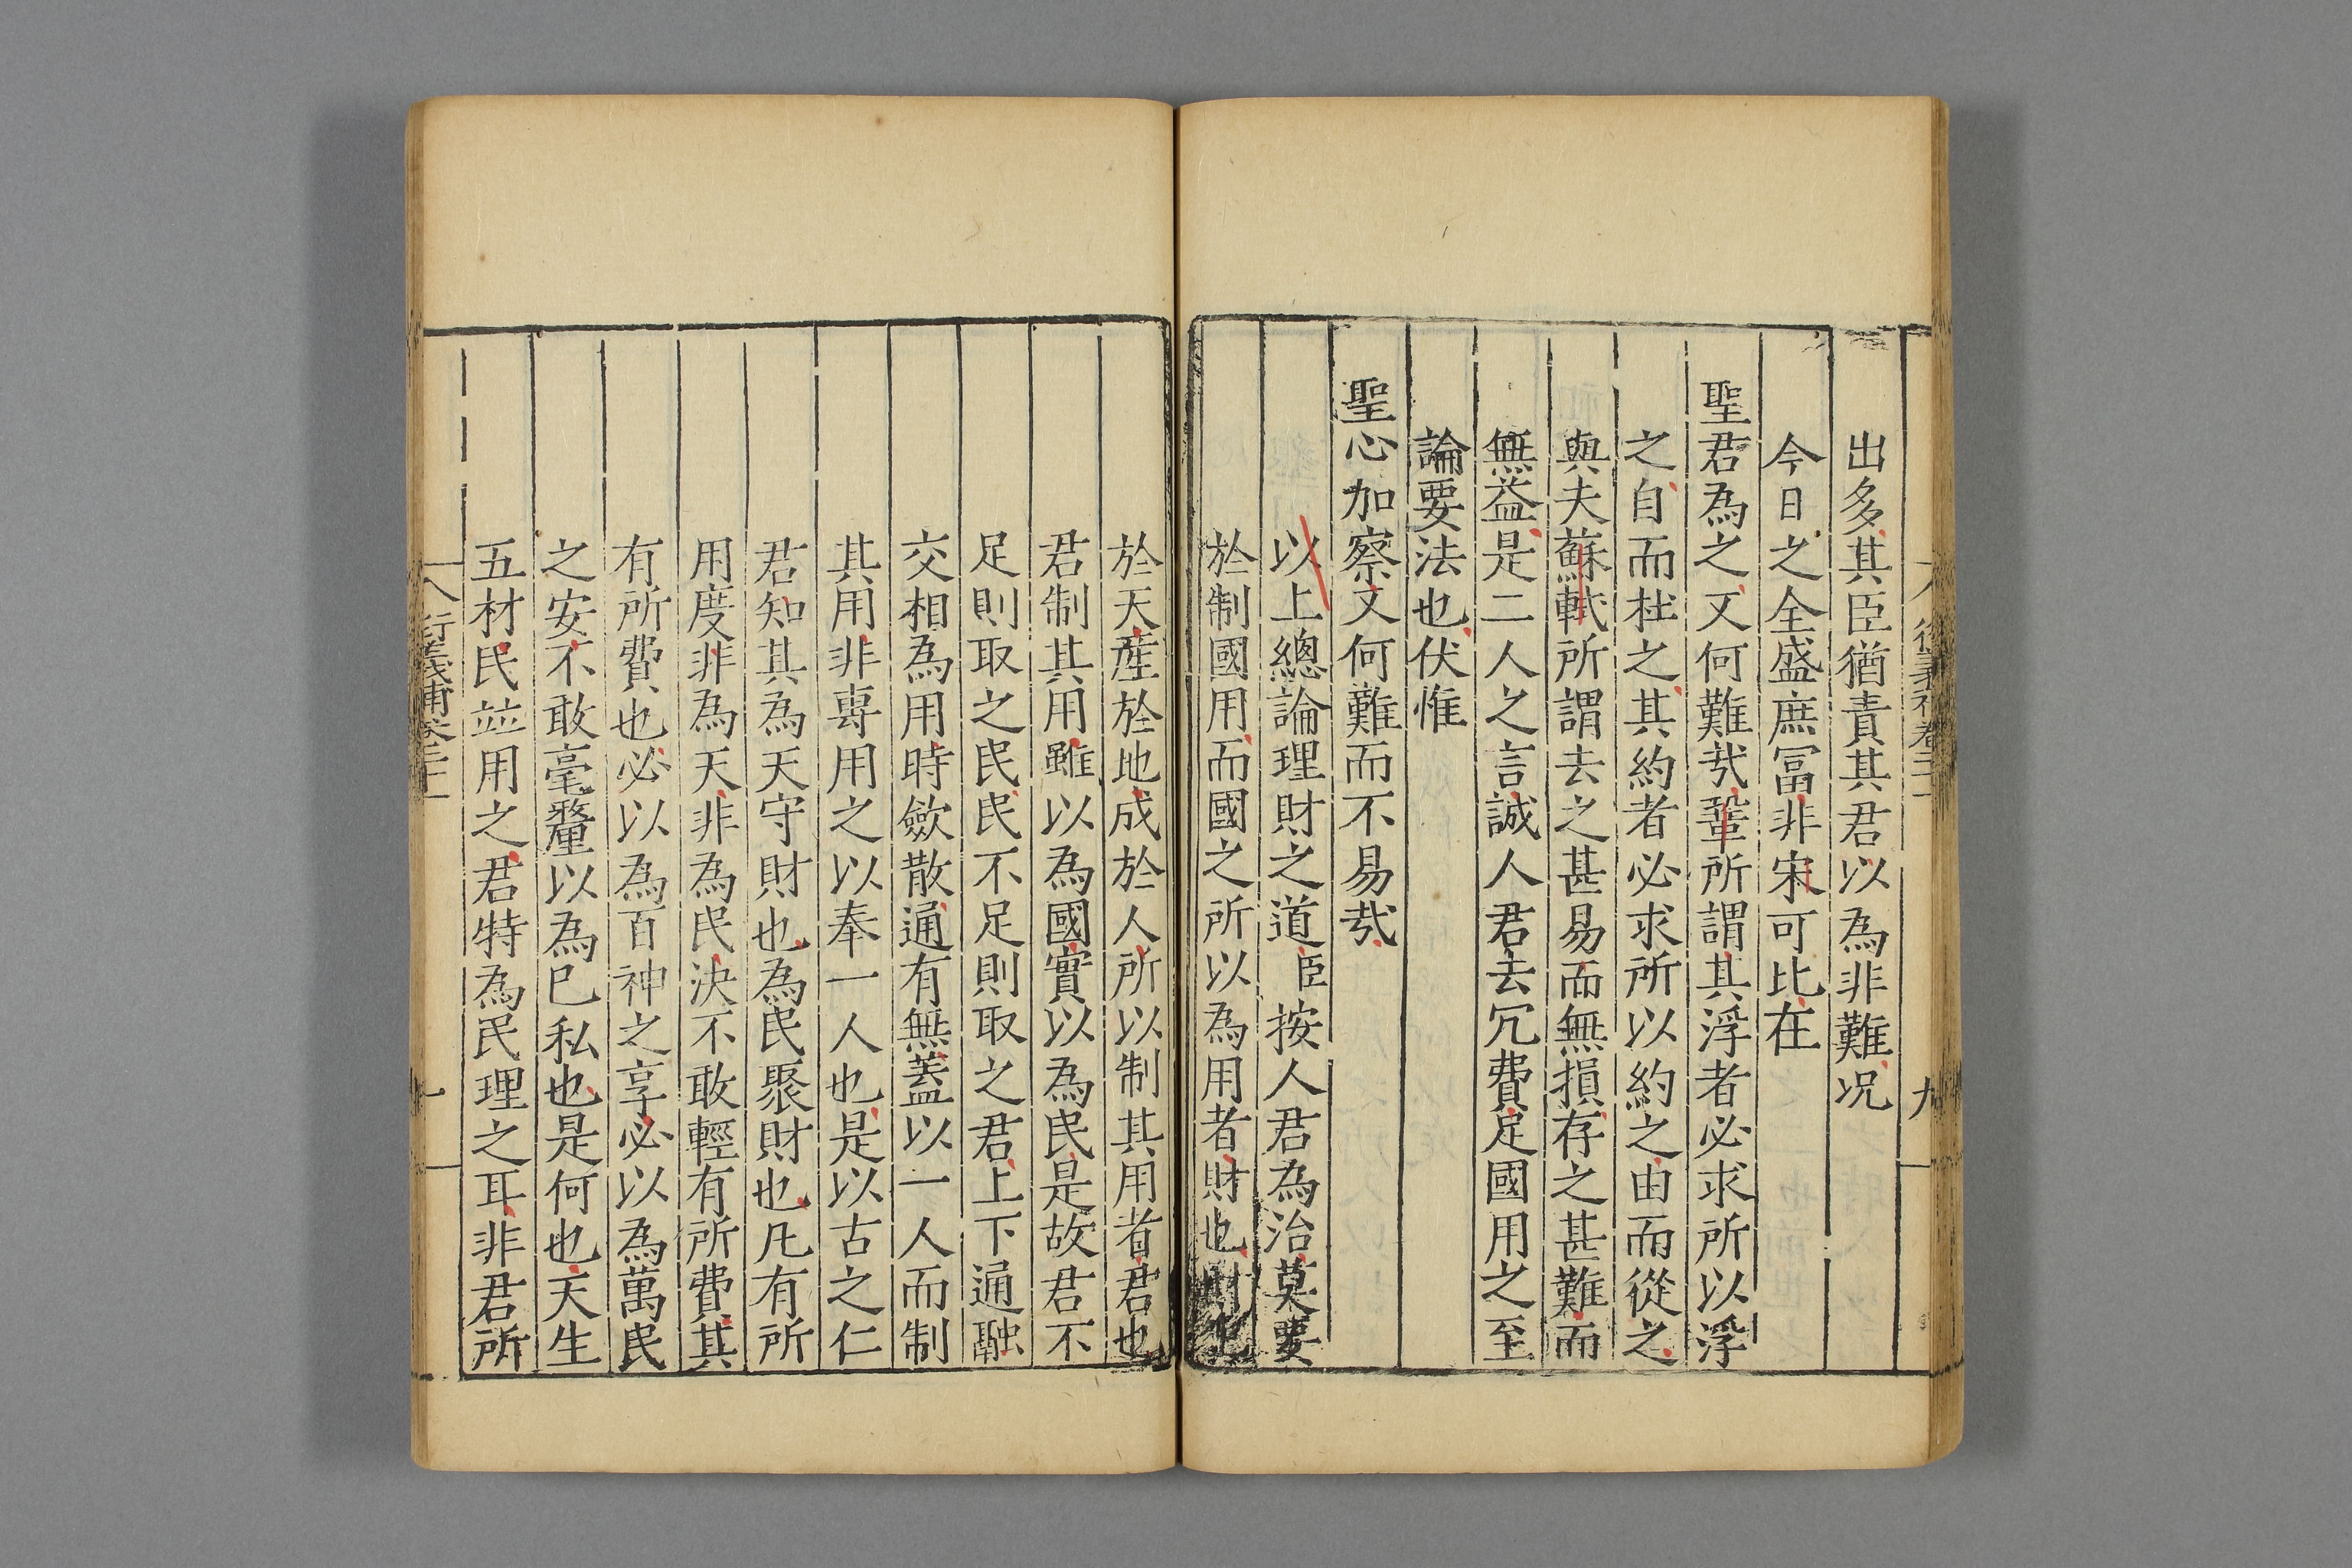 衍義補卷二十一 九
出多其臣猶責其君以為非難况
今日之全盛庶冨非宋可比在
聖君為之又何難㢤鞏所謂其浮者必求所以浮
之自而杜之其約者必求所以約之由而從之
與夫蘇軾所謂去之甚易而無損存之甚難而
無益是二人之言誠人君去冗費足國用之至
論要法也伏惟
聖心加察又何難而不易㢤
以上總論理財之道臣按人君為治莫要
於制國用而國之所以為用者財也財生
於天産於地成於人所以制其用者君也
君制其用雖以為國實以為民是故君不
足則取之民民不足則取之君上下通融
交相為用時歛散通有無蓋以一人而制
其用非專用之以奉一人也是以古之仁
君知其為天守財也為民聚財也凡有所
用度非為天非為民決不敢輕有所費其
有所費也必以為百神之享必以為萬民
之安不敢毫釐以為已私也是何也天生
五材民並用之君特為民理之耳非君所
衍義補卷二十一